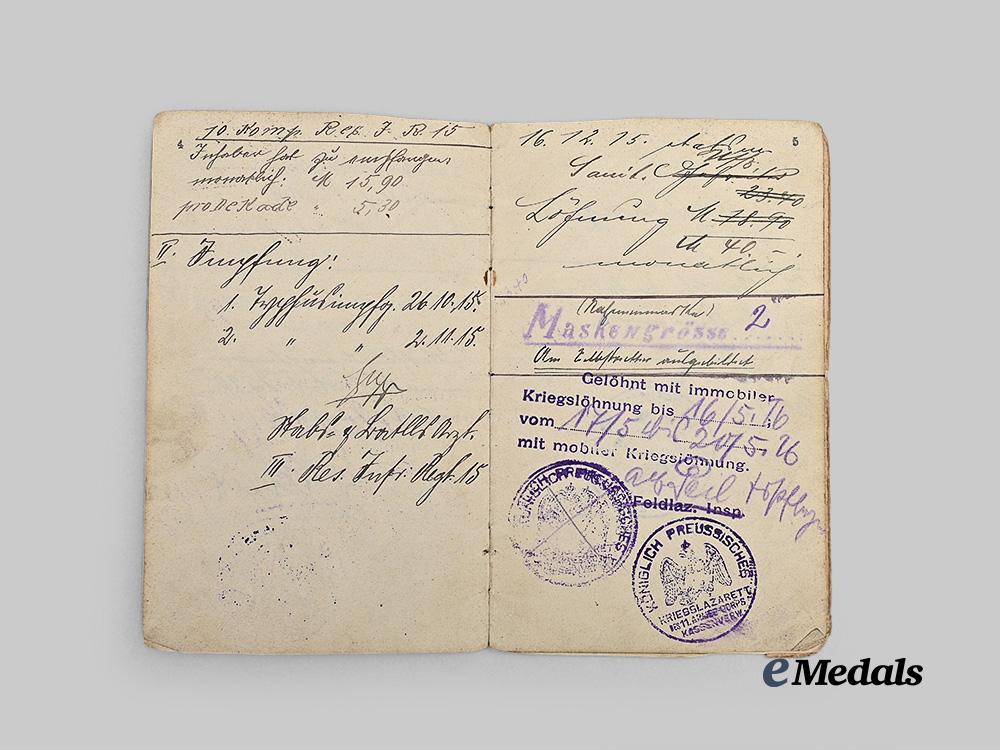 4
10. Komp. Res. J. R. 15
Inhaber hat zu empfangen
monatlich: M 15,90
pro Dekade " 5,30
II. Impfung:
1. Typhusimpfg. 26.10.15.
2. " " 2.11.15.
Stabs- u. Batlls Arzt.
III Res. Inftr. Regt. 15
5
16. 12. 15.
Sanit. Gefreiter
23.40
Löhnung M 18.90
M 40.-
monatlich
Maskengrösse 2
ausgebildet
Gelöhnt mit immobiler
Kriegslöhnung bis 16/5.16
vom 17/5 20/5.16
mit mobiler Kriegslöhnung.
Feldlaz. Insp.
KÖNIGLICH PREUSSISCHES
KÖNIGLICH PREUSSISCHES
KRIEGSLAZARETT
11. ARMEE-CORPS
KASSENVERW.
eMedals